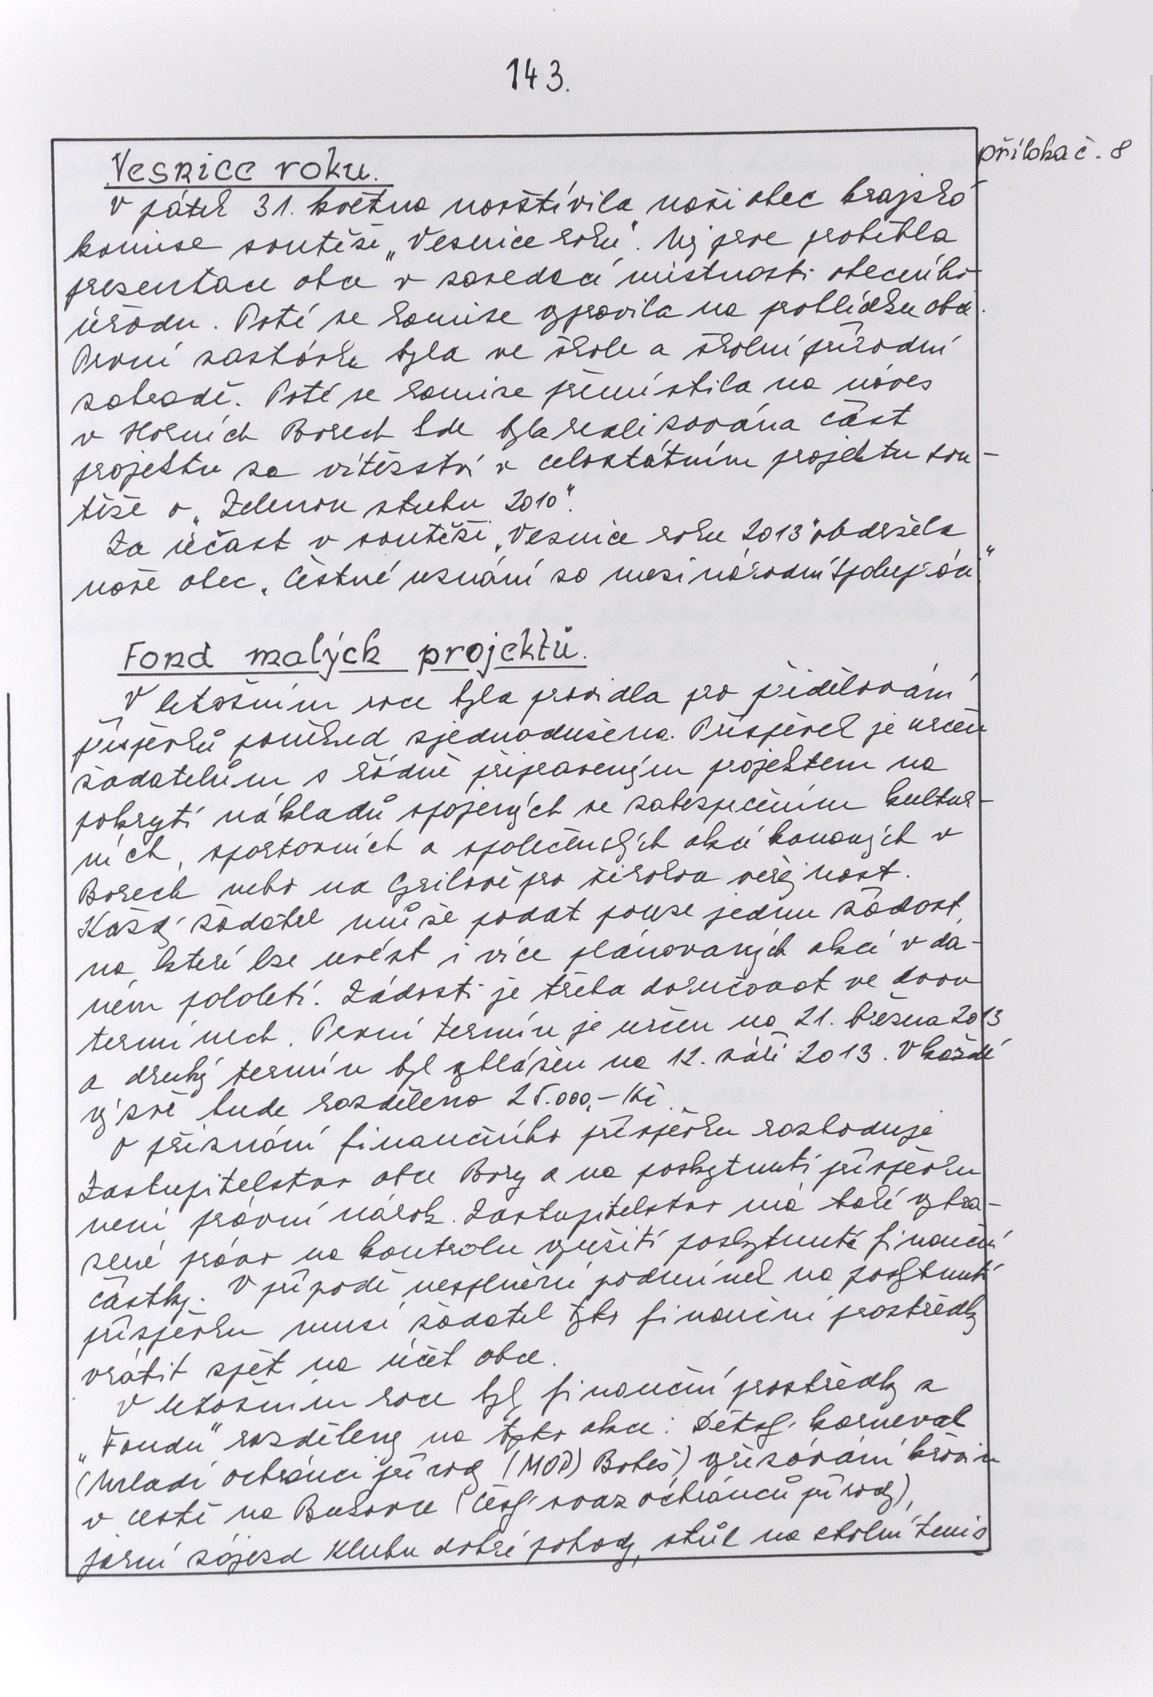 143.
příloha č. 8
Vesnice roku.
V pátek 31. května navštívila naši obec krajská
komise soutěže „Vesnice roku". Nejprve proběhla
presentace obce v zasedací místnosti obecního
úřadu. Poté se komise vypravila na prohlídku obce.
První zastávka byla ve škole a školní přírodní
zahradě. Poté se komise přemístila na náves
v Horních Borech kde byla realizována část
projektu za vítězství v celostátním projektu sou-
těže o „Zelenou stuhu 2010".
Za účast v soutěži „Vesnice roku 2013" obdržela
naše obec „Čestné uznání za mezinárodní spolupráci"
Fond malých projektů.
V letošním roce byla pravidla pro přidělování
příspěvků poněkud zjednodušena. Příspěvek je určen
žadatelům s řádně připraveným projektem na
pokrytí nákladů spojených se zabezpečením kultur-
ních, sportovních a společenských akcí konaných v
Borech nebo na Cyrilově pro širokou veřejnost.
Každý žadatel může podat pouze jednu žádost,
na které lze uvést i více plánovaných akcí v da-
ném pololetí. Žádosti je třeba doručovat ve dvou
termínech. První termín je určen na 21. března 2013
a druhý termín byl vyhlášen na 12. září 2013. V každé
výzvě bude rozděleno 25.000,- Kč.
O přiznání finančního příspěvku rozhoduje
Zastupitelstvo obce Bory a na poskytnutí příspěvku
není právní nárok. Zastupitelstvo má také vyhra-
zené právo na kontrolu využití poskytnuté finanční
částky. V případě nesplnění podmínek na poskytnutí
příspěvku musí žadatel tyto finanční prostředky
vrátit zpět na účet obce.
V letošním roce byly finanční prostředky z
„Fondu" rozděleny na tyto akce: Dětský karneval
(Mladí ochránci přírody (MOP) Bobeš), vyřezávání křovin
v cestě na Bušovce (Český svaz ochránců přírody),
jarní zájezd Klubu dobré pohody, stůl na stolní tenis